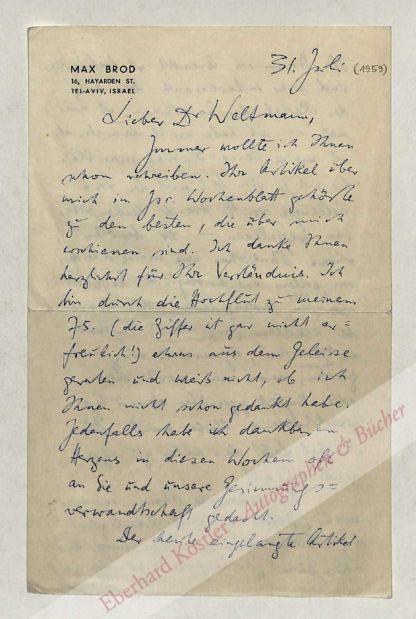 MAX BROD
16, HAYARDEN ST.
TEL-AVIV, ISRAEL
31. Juli (1959)
Lieber Dr Weltmann,
Immer wollte ich Ihnen
schon schreiben. Ihr Artikel über
mich im Isr. Wochenblatt gehörte
zu den besten, die über mich
erschienen sind. Ich danke Ihnen
herzlichst für Ihr Verständnis. Ich
bin durch die Hochflut zu meinem
75. (die Ziffer ist gar nicht er=
freulich!) etwas aus dem Geleise
geraten und weiß nicht, ob ich
Ihnen nicht schon gedankt habe.
Jedenfalls habe ich dankbaren
Herzens in diesen Wochen oft
an Sie und unsere Gesinnungs=
verwandtschaft gedacht.
Der heute eingelangte Artikel
Eberhard Köstler - Autographen & Bücher